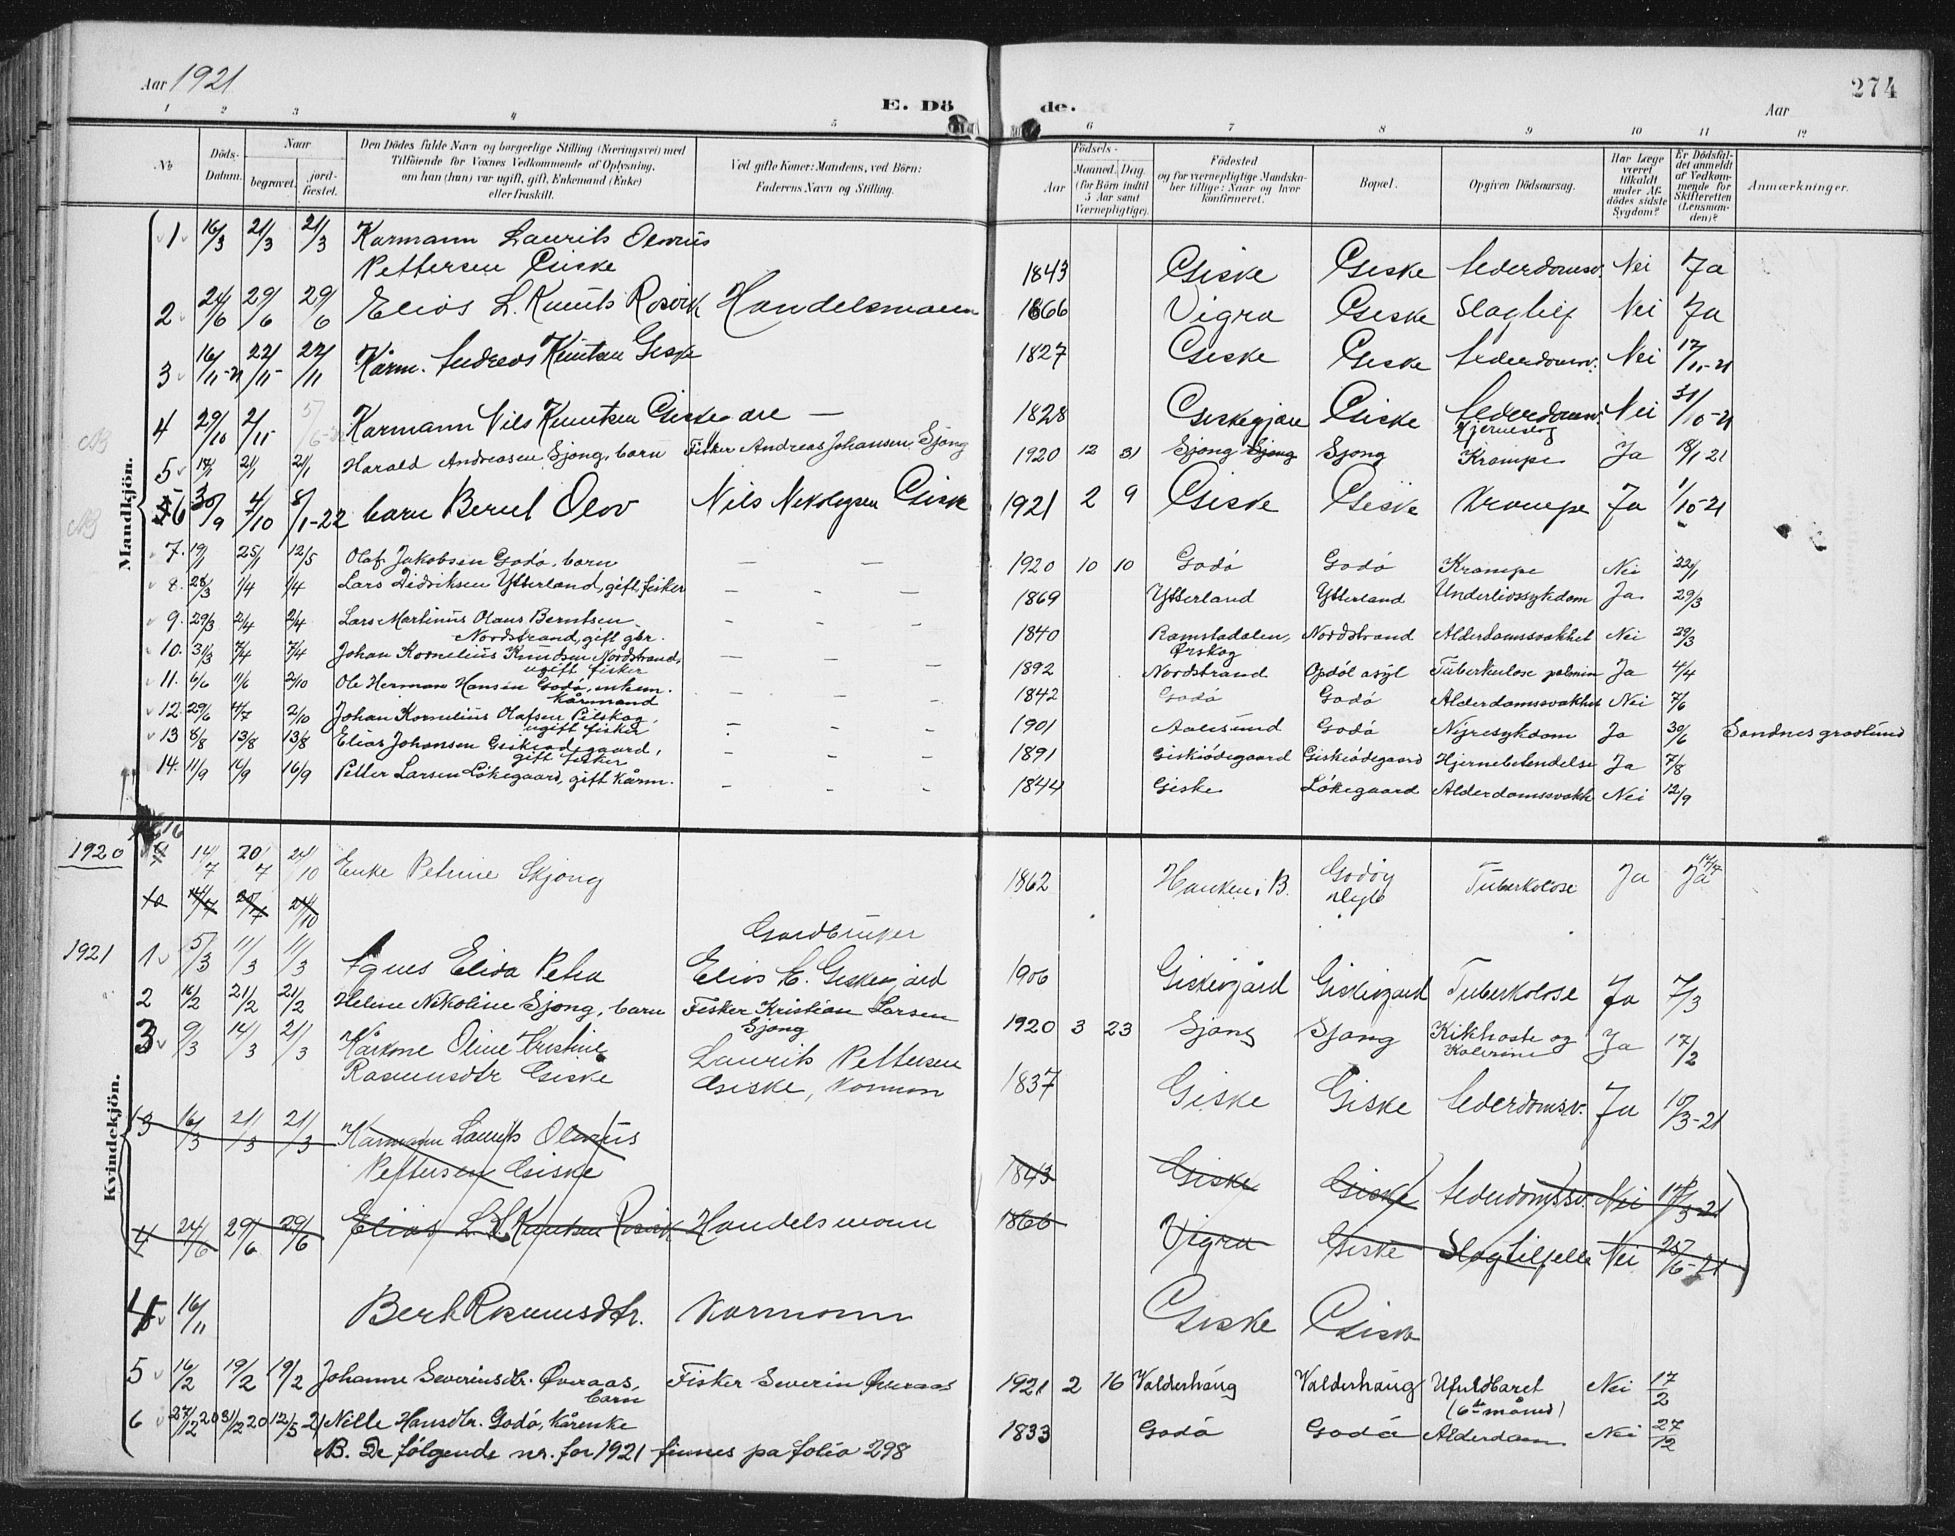 Aar 1921
E. Döde.
Aar
274
1 2 3 4 5 6 7 8 9 10 11 12
№
Döds-Datum.
Naar
begravet.
jordfæstet.
Den Dödes fulde Navn og borgerlige Stilling (Næringsvei) med Tilföiende for Voxnes Vedkommende af Oplysning, om han (hun) var ugift, gift, Enkemand (Enke) eller fraskilt.
Ved gifte Koner: Mandens, ved Börn: Faderens Navn og Stilling.
Födsels-
Aar
Maaned. Dag.
(for Börn indtil 5 Aar samt Værnepligtige).
Födested og for værnepligtige Mandskaber tillige: Naar og hvor konfirmeret.
Bopæl.
Opgiven Dödsaarsag.
Har Læge været tilkaldt under Afdödes sidste Sygdom?
Er Dödsfaldet anmeldt af Vedkommende for Skifteretten (Lensmanden)?
Anmærkninger.
Mandkjön.
1 16/3 21/3 21/3 Karmann Laurits Olinus
Pettersen Giske 1843 Giske Giske Alderdomsv. Nei Ja
2 24/6 29/6 29/6 Elias L. Knuts Rosvik Handelsmann 1866 Vigra Giske Slagtilf Nei Ja
3 16/11-21 22/11 22/11 Kårm. Andreas Knutsen Giske 1827 Giske Giske Alderdomsv. Nei 17/11-21
4 29/10 2/11 Karmann Nils Knutsen Giskegjære — 1828 Giskegjære Giske Alderdomsv. Nei 31/10-21
NB
5 17/1 21/1 21/1 Harald Andreasen Sjong, barn Fisker Andreas Johansen Sjong 1920 12 31 Sjong Sjong Sjong Krampe Ja 18/1 21
NB
6 30/9 4/10 8/1-22 barn Bernt Olov Nils Nikolaysen Giske 1921 2 9 Giske Giske Krampe Ja 1/10-21
7. 19/1 25/1 12/5 Olaf Jakobsen Godö, barn — — 1920 10 10 Godö Godö Krampe Nei 22/1
8. 28/3 1/4 1/4 Lars Didriksen Ytterland, gift, fisker — — — 1869 Ytterland Ytterland Underlivssykdom Ja 29/3
9. 29/3 2/4 2/4 Lars Martinus Olaus Berntsen
Nordstrand, gift gbr. - - - 1840 Ramstadalen, Ørskog Nordstrand Alderdomssvakhet Nei 29/3
10. 31/3 7/4 7/4 Johan Kornelius Knudsen Nordstrand,
ugift fisker — — — 1892 Nordstrand Opdöl asyl Tuberkulose pulmon Ja 4/4
11. 6/6 11/6 2/10 Ole Herman Hansen Godö, enkem.
kårmand - - - 1842 Godö Godö Alderdomssvakhet Nei 7/6
12. 29/6 4/7 2/10 Johan Kornelius Olafsen Pilskog,
ugift fisker - - - 1901 Aalesund Godö Nyresykdom Ja 30/6 Sandnes gravlund
13 8/8 13/8 13/8 Elias Johansen Giskeödegaard,
gift fisker - - - 1891 Giskeödegaard Giskeödegaard Hjernebetendelse Ja 7/8
14. 11/9 16/9 16/9 Petter Larsen Lökegaard, gift kårm. - - - 1844 Giske Lökegaard Alderdomssvakh Nei 12/9
Kvindekjön.
1920 16 14/7 20/7 24/10 Enke Petrine Skjong 1862 Hauken, B. Godöy Tuberkolose Ja Ja
10 14/7 20/7 24/10
Gardbruger
1921 1 5/3 11/3 11/3 Agnes Elida Petra Elias E. Giskegjærd 1906 Giskegjærd Giskegjærd Tuberkolose Ja 7/3
2 16/2 21/2 21/2 Heline Nikoline Sjong, barn Fisker Kristian Larsen
Sjong 1920 3 23 Sjong Sjong Kikhoste og
Kolerine Ja 17/2
3 9/3 14/3 21/3 Karkone Oline Kristine
Rasmusdtr Giske Laurits Pettersen
Giske, Karman 1837 Giske Giske Alderdomsv. Ja 10/3-21
3 16/3 21/3 21/3 Karmann Laurits Olinus
Pettersen Giske 1843 Giske Giske Alderdomssv. Nei
4 24/6 29/6 29/6 Elias L. Knutsen Rosvik Handelsmann 1866 Vigra Giske Slagtilfelle Nei 25/6-21
4 16/11 Berk Rasmusdtr. Karmann Giske Giske
5 16/2 19/2 19/2 Johanne Severinsdtr. Överaas,
barn Fisker Severin Överaas 1921 2 16 Valderhaug Valderhaug Ufuldbaret
(6te måned) Nei 17/2
6 27/12 20 31/12 20 12/5-21 Nille Hansdtr. Godö, kårenke 1833 Godö Godö Alderdom Nei 27/12
NB. De fölgende nr. for 1921 finnes pa folio 298